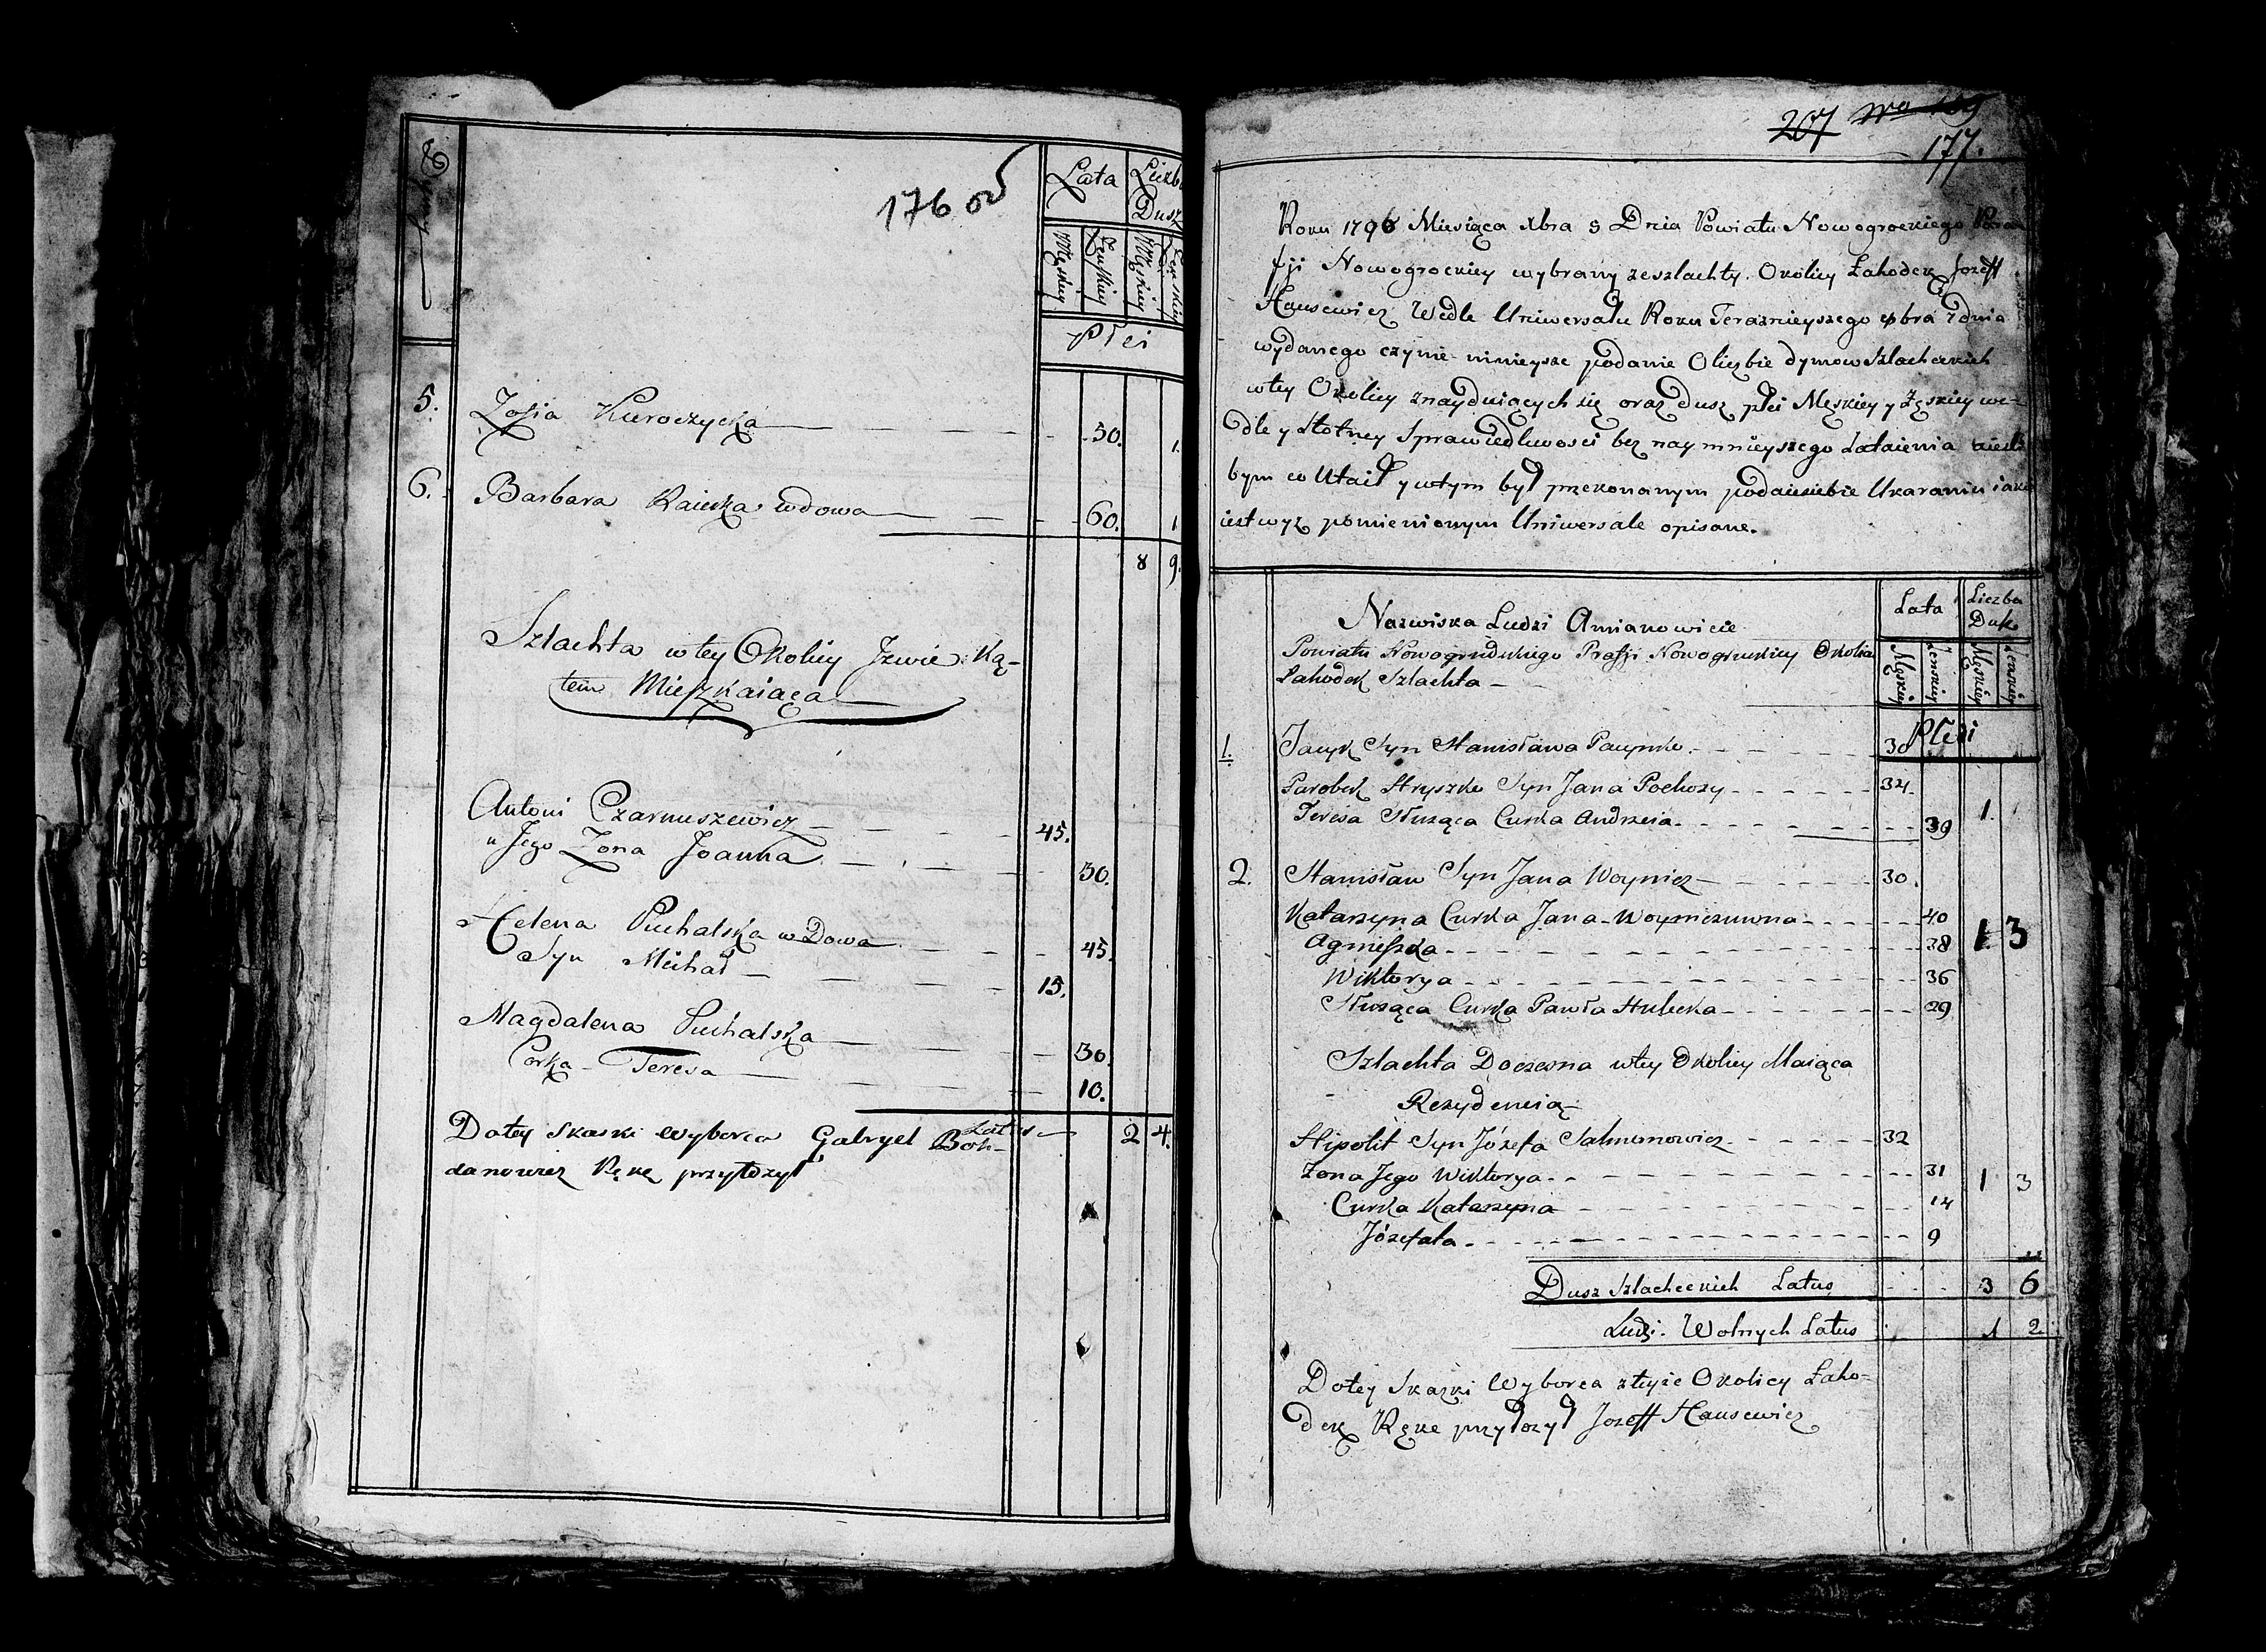 Dymy
176 ov
Lata Liczba
Dusz
Męskiey Żeńskiey Męskiey Żeńskiey
Płci
5. Zofia Kuroczycka 50. 1.
6. Barbara Raiecka wdowa 60. 1
8 9.
Szlachta w tey Okolicy Jzwie Ką-
tem Mieszkaiąca
Antoni Czarnuszewicz 45.
Jego Zona Joanna 30.
Helena Puchalska wDowa 45.
Syn Michał 15.
Magdalena Puchalska 30.
Corka Teresa 10.
Latus 2 4.
Dotey Skaski wyborca Gabryel Boh-
danowicz Rękę przyłożył
207
177.
Roku 1796 Miesiąca xbra 9 Dnia Powiatu Nowogrockiego Para
fji Nowogrockiey wybrany ze szlachty Okolicy Łahodek Jozeff
Hausewicz Wedle Uniwersału Roku Teraznieyszego dnia
wydanego czynie ninieysze podanie O liczbie dymow Szlacheckich
wtey Okolicy znayduiących się oraz dusz płci Męskiey y Zęskiey we-
dle y stotney Sprawiedliwosci bez naymnieyszego Zataienia
bym co Utaił y wtym był przekonanym podaie siebie Ukaraniu iako
iest wyz pomienionym Uniwersale opisane.
Nazwiska Ludzi Amianowicie
Lata Liczba
Dusz
Powiatu Nowogrudzkiego Prafji Nowogruckiey Okolica
Łahodek Szlachta
Męskiey Żenskiey Męskiey Żenskiey
Płci
1. Jacyk Syn Stanisława Pacynko 30
Parobek Hryszko Syn Jana Pochozy 34.
Teresa Służąca Curka Andrzeia 39 1.
2. Stanisław Syn Jana Woynicz 30.
Katarzyna Curka Jana Woyniczuwna 40
Agnieszka 38 1 3
Wiktorya 36
Służąca Curka Pawła Hulecka 29
Szlachta Doczesna wtey Okolicy Maiąca
Rezydencią
Hipolit Syn Józefa Salmonowicz 32
Zona Jego Wiktorya 31 1 3
Curka Katarzyna 14
Józefata 9
Dusz Szlacheckich Latus 3 6
Ludzi Wolnych Latus 1 2.
Dotey Skazki Wyborca zteyze Okolicy Łaho-
dek Rękę przyłozył Jozeff Hausewicz